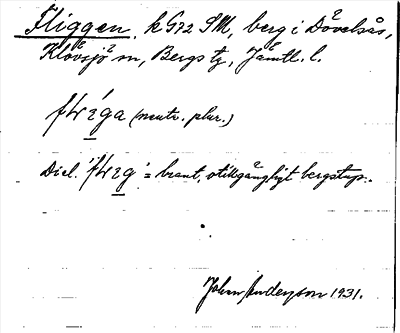 Fliggen, k G92 SM, berg i Dövelsås,
Klövsjö sn, Bergs tg, Jämtl. l.
flega (neutr. plur.)
Dial. 'fleg' = brant, otillgängligt bergstup.
John Anderson 1931.